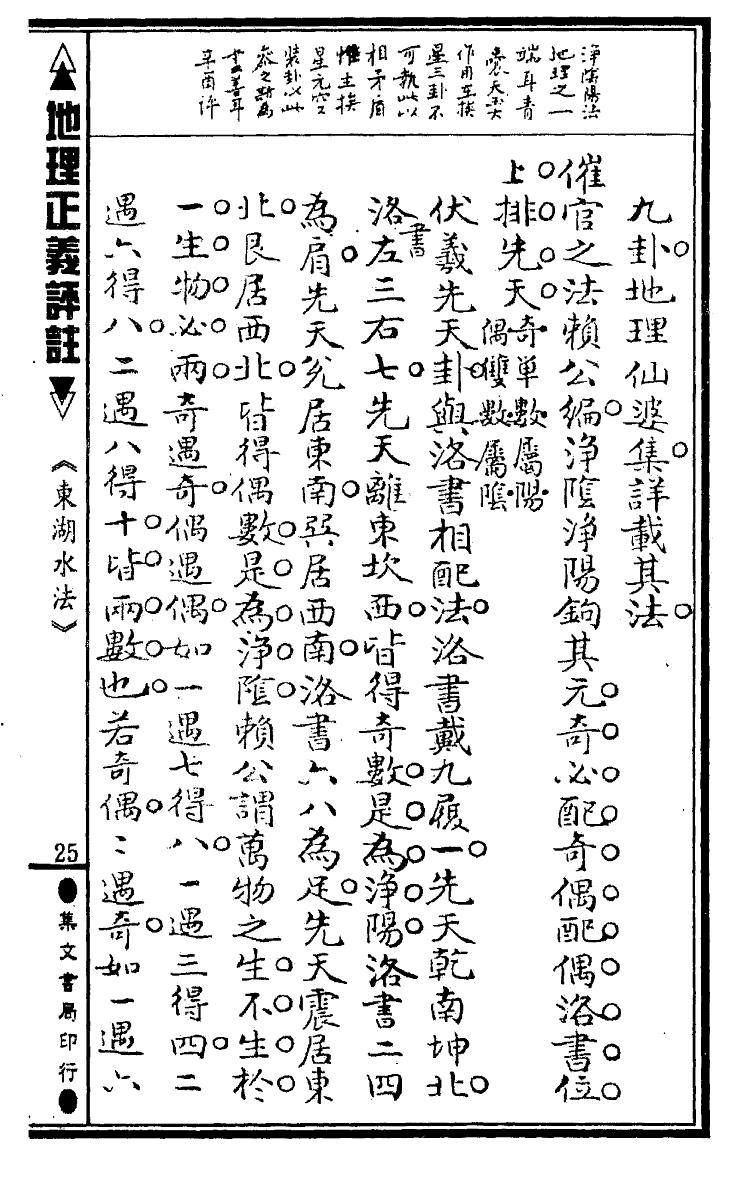 淨陰陽法
地理之一
端耳青
囊天玉大
作用在挨
星三卦不
可執此以
相矛盾
惟主挨
星元空
裝卦以此
參之斯為
盡善耳
辛酉許
九卦地理仙婆集詳載其法
催官之法賴公編淨陰淨陽鉤其元奇必配奇偶配偶洛書位
上排先天奇單數屬陽偶雙數屬陰
伏羲先天卦與洛書相配法洛書戴九履一先天乾南坤北
洛書左三右七先天離東坎西皆得奇數是為淨陽洛書二四
為肩先天兌居東南巽居西南洛書六八為足先天震居東
北艮居西北皆得偶數是為淨陰賴公謂萬物之生不生於
一生物必兩奇遇奇偶遇偶如一遇七得八一遇三得四二
遇六得八二遇八得十皆兩數也若奇偶〻遇奇如一遇六
地理正義評註
《東湖水法》
25
集文書局印行